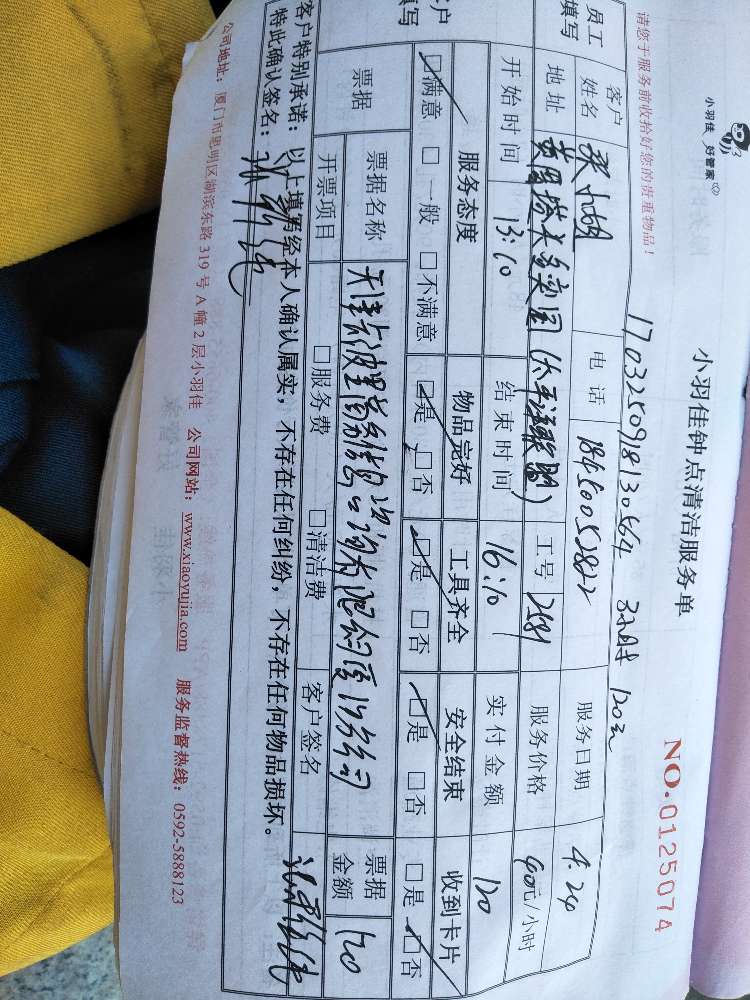 小羽佳 好管家
小羽佳钟点清洁服务单
NO.0125074
请您于服务前收拾好您的贵重物品!
170325098130564 3小时 120元
员工填写 客户姓名 电话 18450052822 服务日期 4.24
地址 工号 服务价格 40元/小时
开始时间 13:10 结束时间 16:10 实付金额 120
客户填写 服务态度 物品完好 工具齐全 安全结束 收到卡片
☑满意 □一般 □不满意 ☑是 □否 ☑是 □否 ☑是 □否 □是 ☑否
票据 票据名称 票据金额 120
开票项目 □服务费 □清洁费 客户签名
客户特别承诺:以上填写经本人确认属实,不存在任何纠纷,不存在任何物品损坏。
特此确认签名:
公司地址:厦门市思明区湖滨东路319号A幢2层小羽佳 公司网站:www.xiaoyujia.com 服务监督热线:0592-5888123